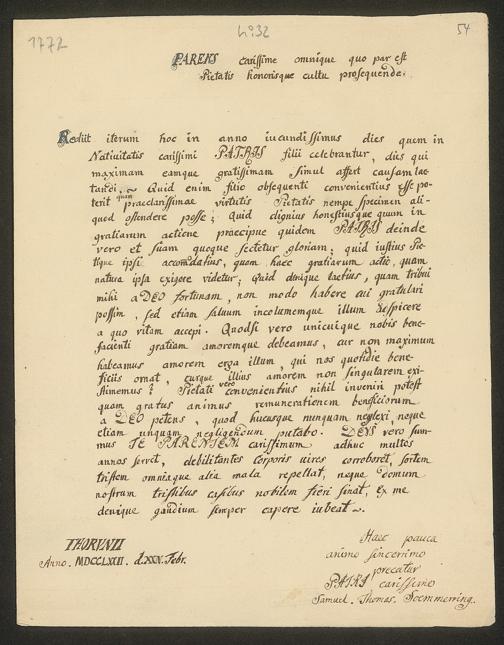 1772
No: 32
54
PARENS carissime omnique quo par est
Pietatis honorisque cultu prosequende.
Rediit iterum hoc in anno iucundissimus dies quem in
Nativitatis carissimi PATRIS filii celebrantur, dies qui
maximam eamque gratissimam simul affert causam lae
tandi. Quid enim filio obsequenti convenientius esse po-
terit quam praeclarissimae virtutis Pietatis nempe specimen ali-
quod ostendere posse; Quid dignius honestiusque quum in
gratiarum actione praecipue quidem PATRIS deinde
vero et suam quoque sectetur gloriam; quid iustius Pie-
tique ipsi accomodatius, quam haec gratiarum actio, quam
natura ipsa exigere videtur; Quid denique laetius, quam tribui
mihi a DEO fortunam, non modo habere cui gratulari
possim, sed etiam saluum incolumemque illum aspicere
a quo vitam accepi. Quodsi vero unicuique nobis bene-
facienti gratiam amoremque debeamus, cur non maximum
habeamus amorem erga illum, qui nos quotidie bene-
ficiis ornat, curque illius amorem non singularem exi-
stimemus? Pietati vero convenientius nihil inveniri potest
quam gratus animus remunerationem beneficiorum
a DEO petens, quod hucusque nunquam neglexi neque
etiam unquam negligendum putabo. DEUS vero sum-
mus TE PARENTEM carissimum adhuc multos
annos servet, debilitantes corporis uires corroboret, sortem
tristem omniaque alia mala repellat, neque domum
nostram tristibus casibus nobilem fieri sinat, ex me
denique gaudium semper capere iubeat.
THORUNII
Anno. MDCCLXXII. d.XXV. Febr.
Haec pauca
animo sincerimo
precatur
PATRI carissimo
Samuel. Thomas. Soemmerring.